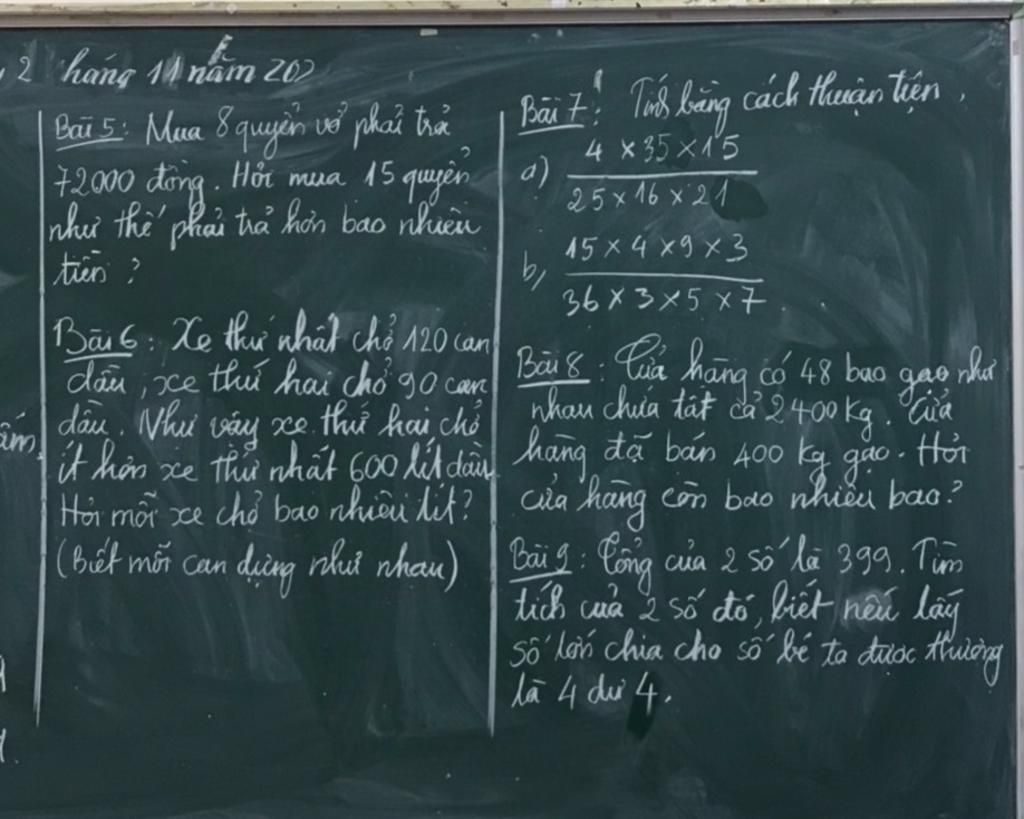 2 háng 11 năm 202
Bài 5: Mua 8 quyển vở phải trả
72000 đồng. Hỏi mua 15 quyển
như thế phải trả hơn bao nhiêu
tiền ?
Bài 6: Xe thứ nhất chở 120 can
dầu, xe thứ hai chở 90 can
dầu. Như vậy xe thứ hai chở
ít hơn xe thứ nhất 600 lít dầu
Hỏi mỗi xe chở bao nhiêu lít?
(Biết mỗi can đựng như nhau)
Bài 7: Tính bằng cách thuận tiện.
a) 4 × 35 × 15
25 × 16 × 21
b, 15 × 4 × 9 × 3
36 × 3 × 5 × 7
Bài 8: Cửa hàng có 48 bao gạo như
nhau chứa tất cả 2400 kg. Cửa
hàng đã bán 400 kg gạo. Hỏi
cửa hàng còn bao nhiêu bao?
Bài 9: Tổng của 2 số là 399. Tìm
tích của 2 số đó, biết nếu lấy
số lớn chia cho số bé ta được thương
là 4 dư 4.